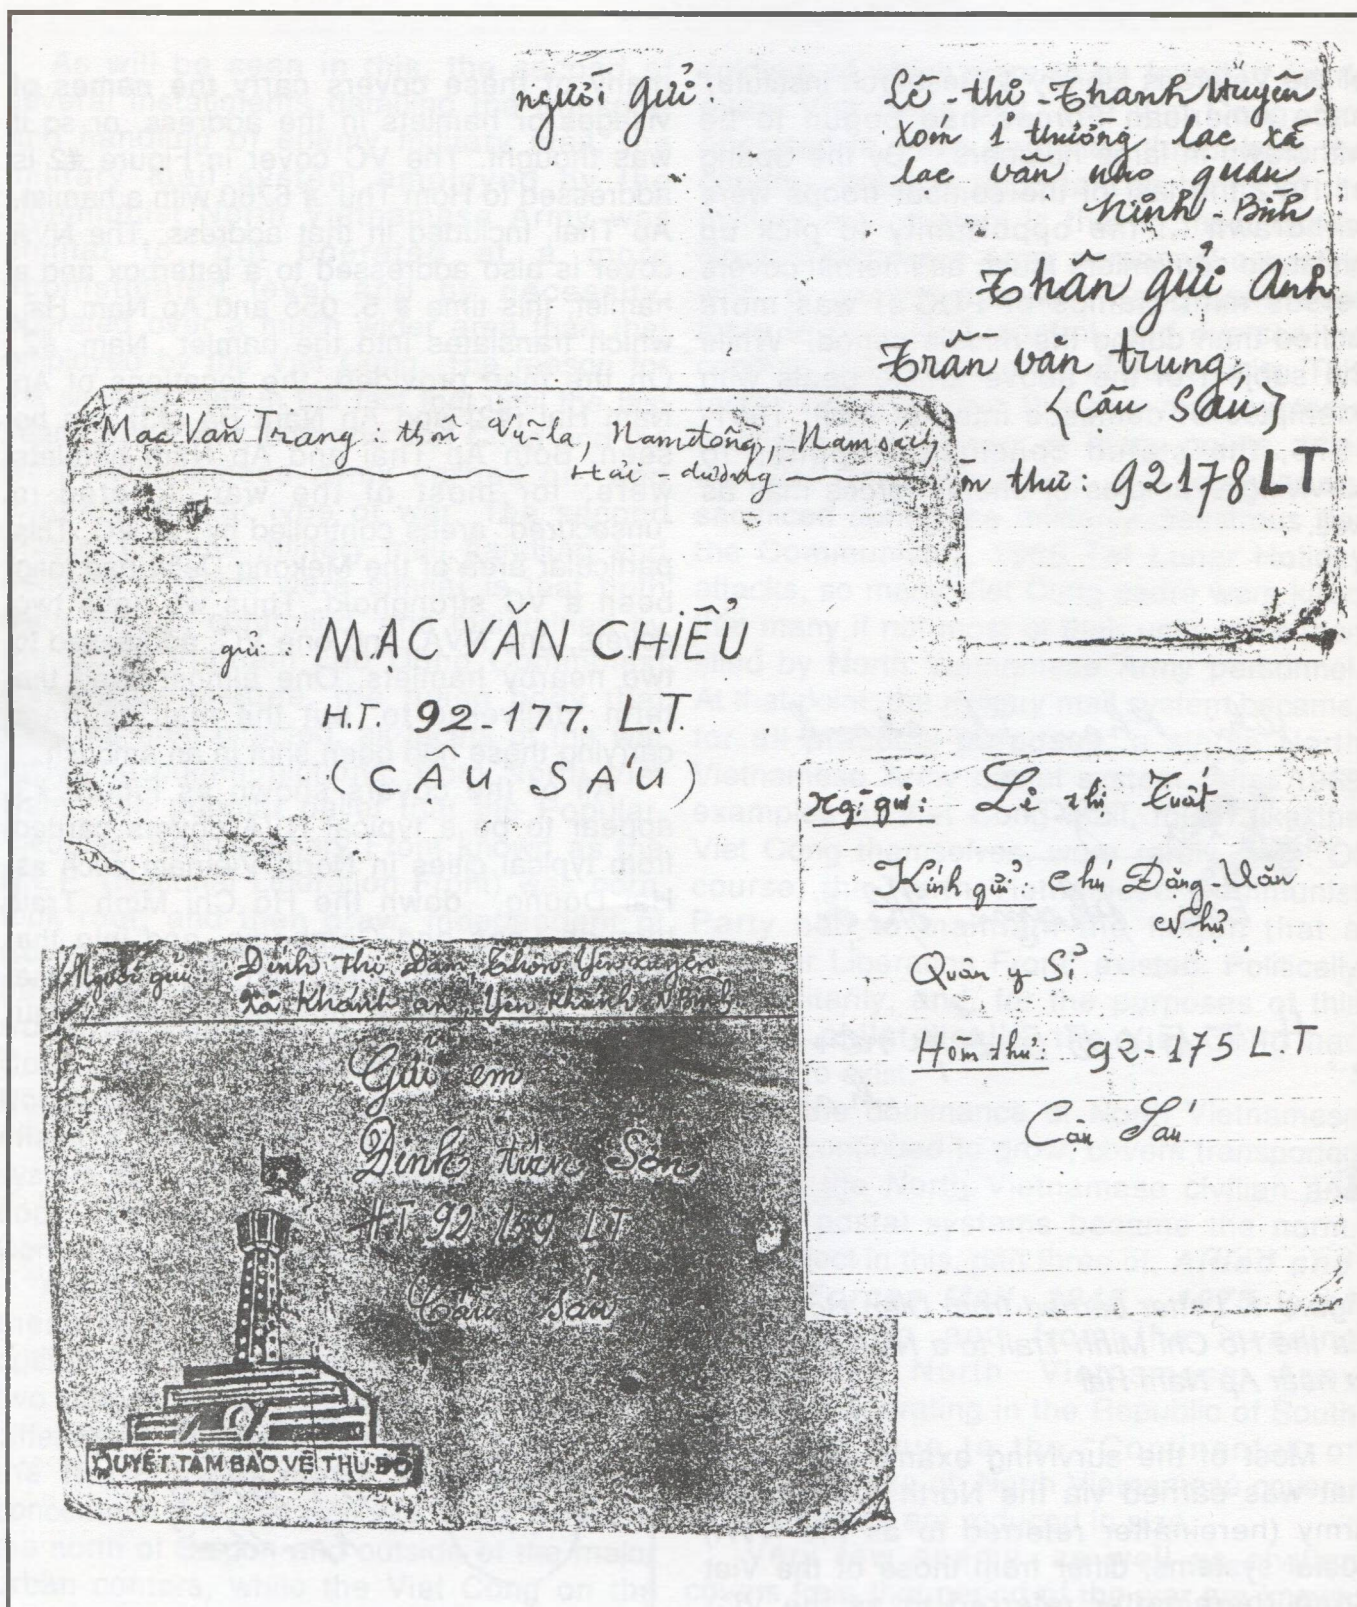 người gửi:
Lê-thị-Thanh Huyền
xóm 1 thường lạc xã
lạc vân nho quan
Ninh-Bình
Thân gửi Anh
Trần văn trung
(Cậu Sáu)
òm thư: 92178 LT
Mạc Văn Trang: thôn Vũ-la, Namđồng, Namsách
Hải-dương
gửi: MẠC VĂN CHIỂU
H.T. 92-177. L.T.
(CẬU SÁU)
Ngị gửi: Lê thị Tuất
Kính gửi: chú Đặng-Văn
Nhự
Quân y Sĩ
Hòm thư: 92-175 L.T
Cậu Sáu
Người gửi Đinh thị Đàm, Thôn Yên xuyên
Xã Khánh an, Yên Khánh N Bình
Gửi em
Đinh tiên Sơn
HT. 92 159 LT
Cậu sáu
QUYẾT TÂM BẢO VỆ THỦ ĐÔ